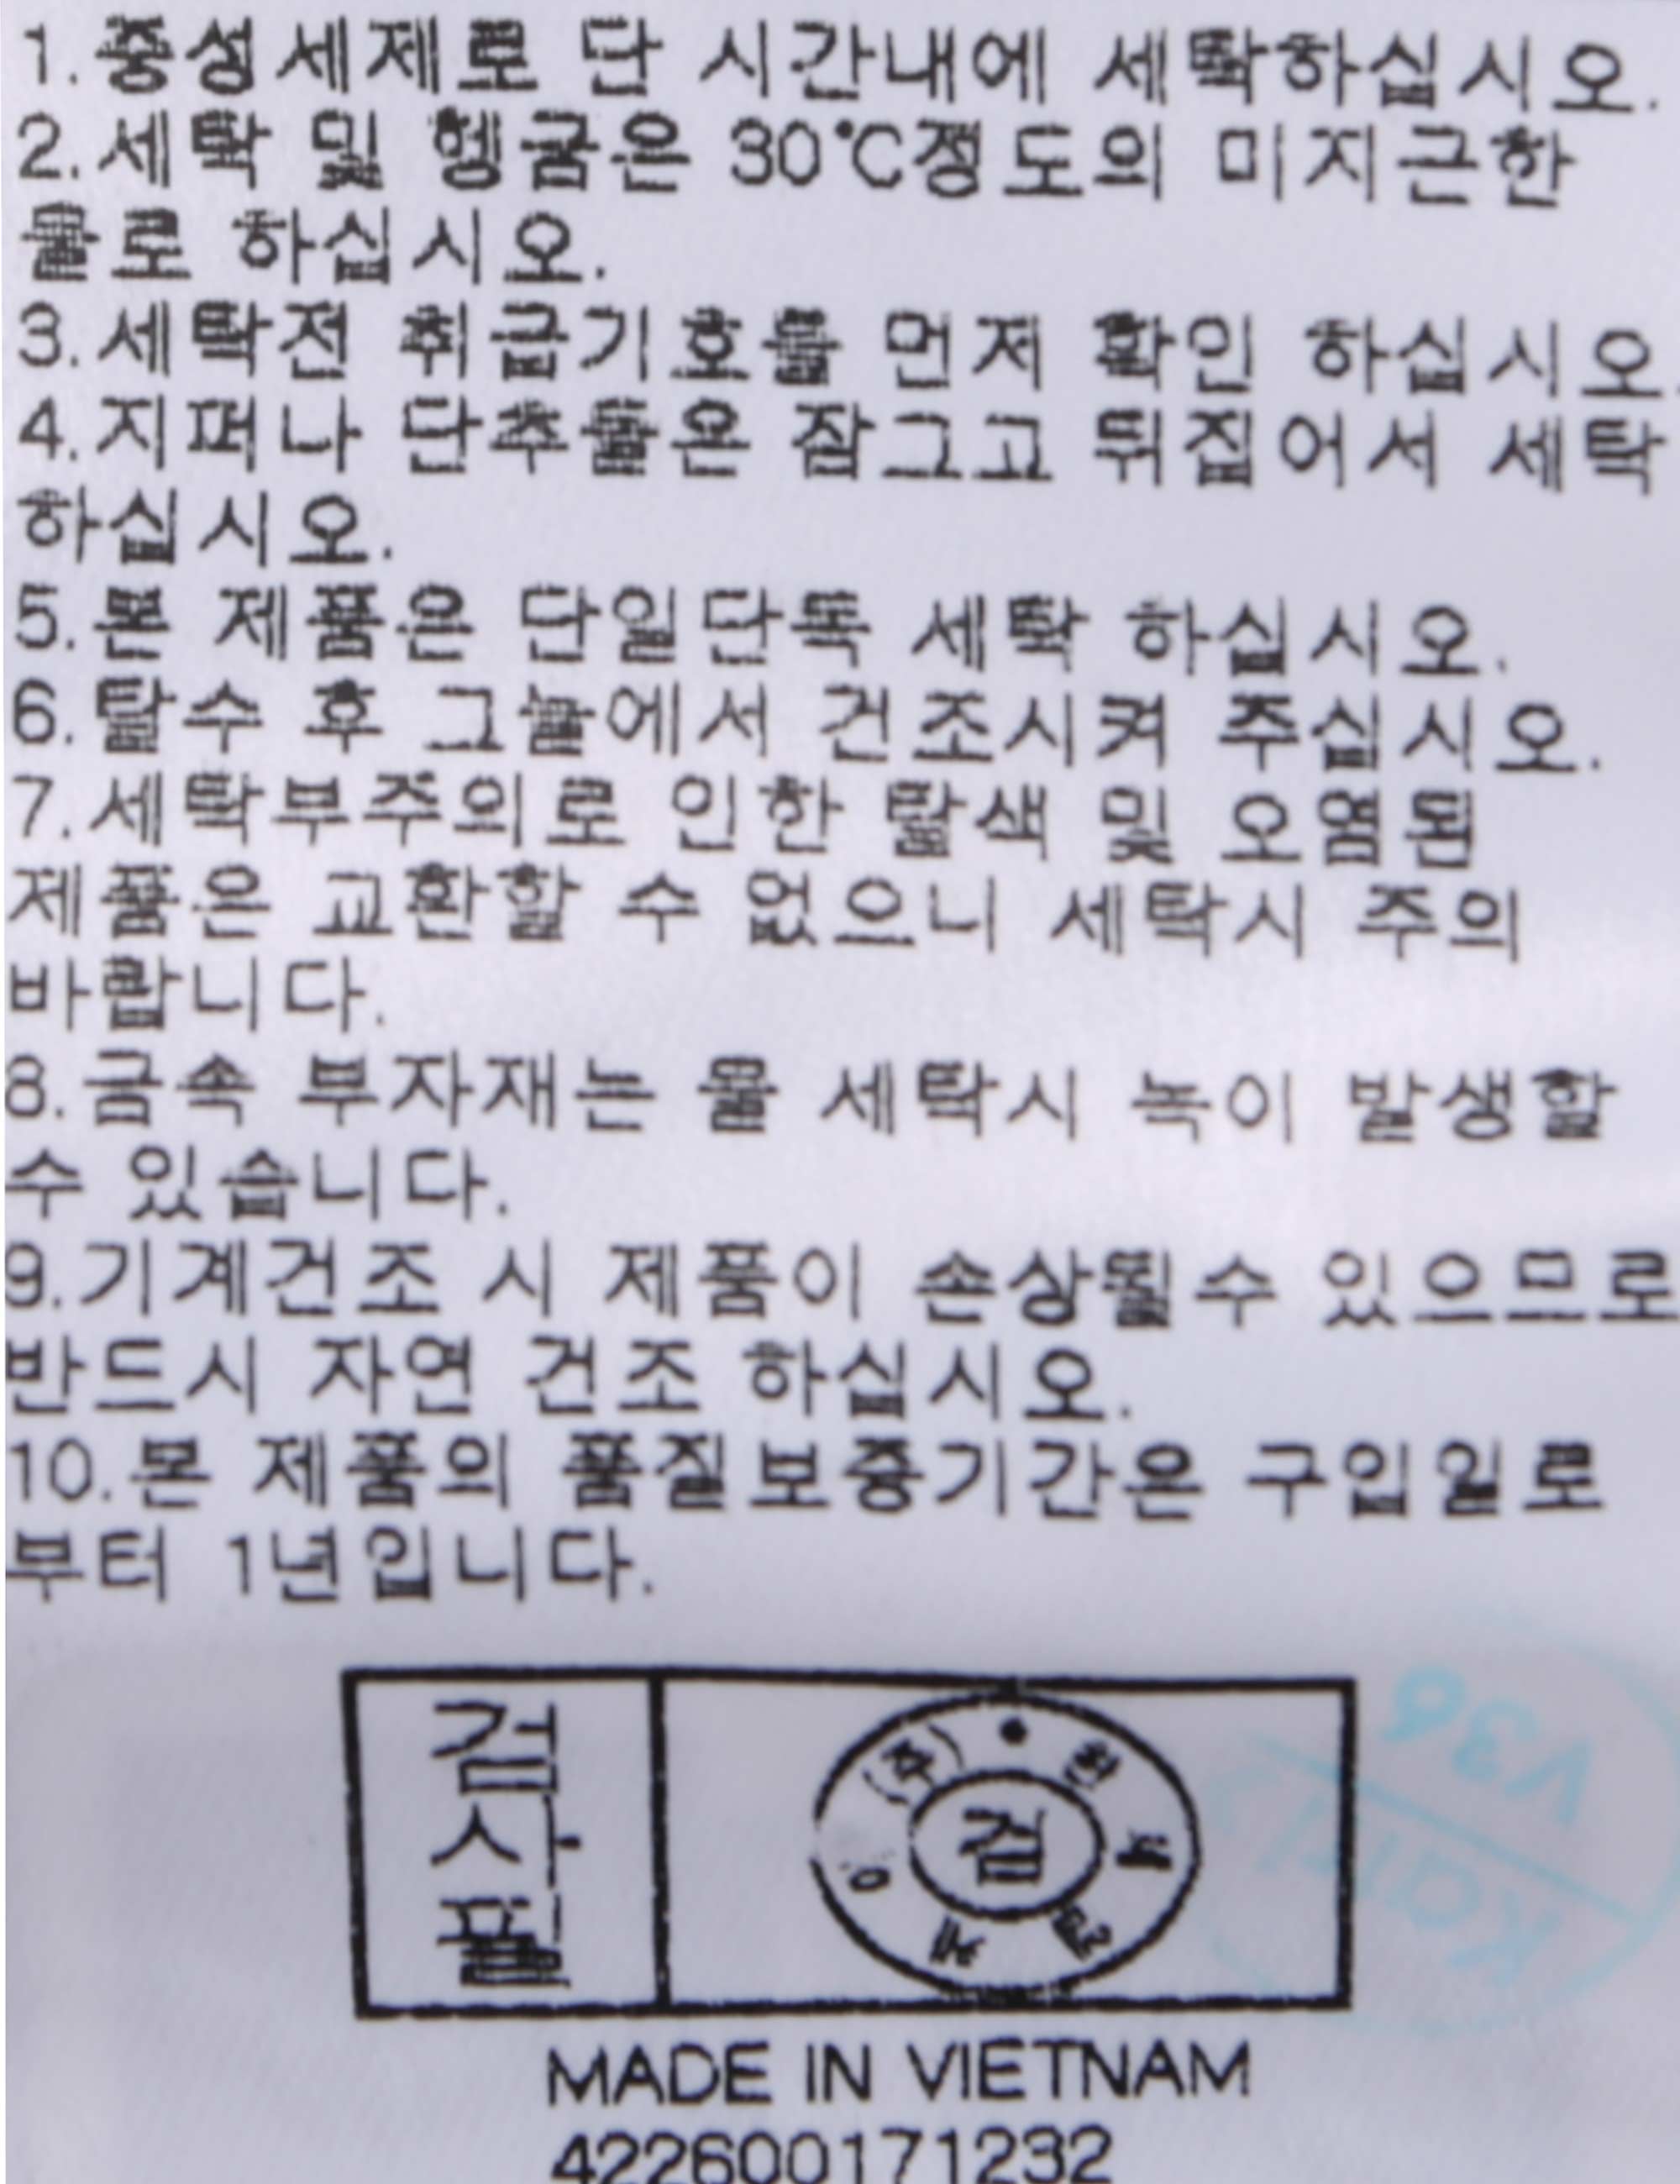 1.중성세제로 단 시간내에 세탁하십시오.
2.세탁 및 헹굼은 30℃정도의 미지근한
물로 하십시오.
3.세탁전 취급기호를 먼저 확인 하십시오.
4.지퍼나 단추들은 잠그고 뒤집어서 세탁
하십시오.
5.본 제품은 단일단독 세탁 하십시오.
6.탈수 후 그늘에서 건조시켜 주십시오.
7.세탁부주의로 인한 탈색 및 오염된
제품은 교환할 수 없으니 세탁시 주의
바랍니다.
8.금속 부자재는 물 세탁시 녹이 발생할
수 있습니다.
9.기계건조 시 제품이 손상될수 있으므로
반드시 자연 건조 하십시오.
10.본 제품의 품질보증기간은 구입일로
부터 1년입니다.
검사필
(주)
검
MADE IN VIETNAM
422600171232
V36